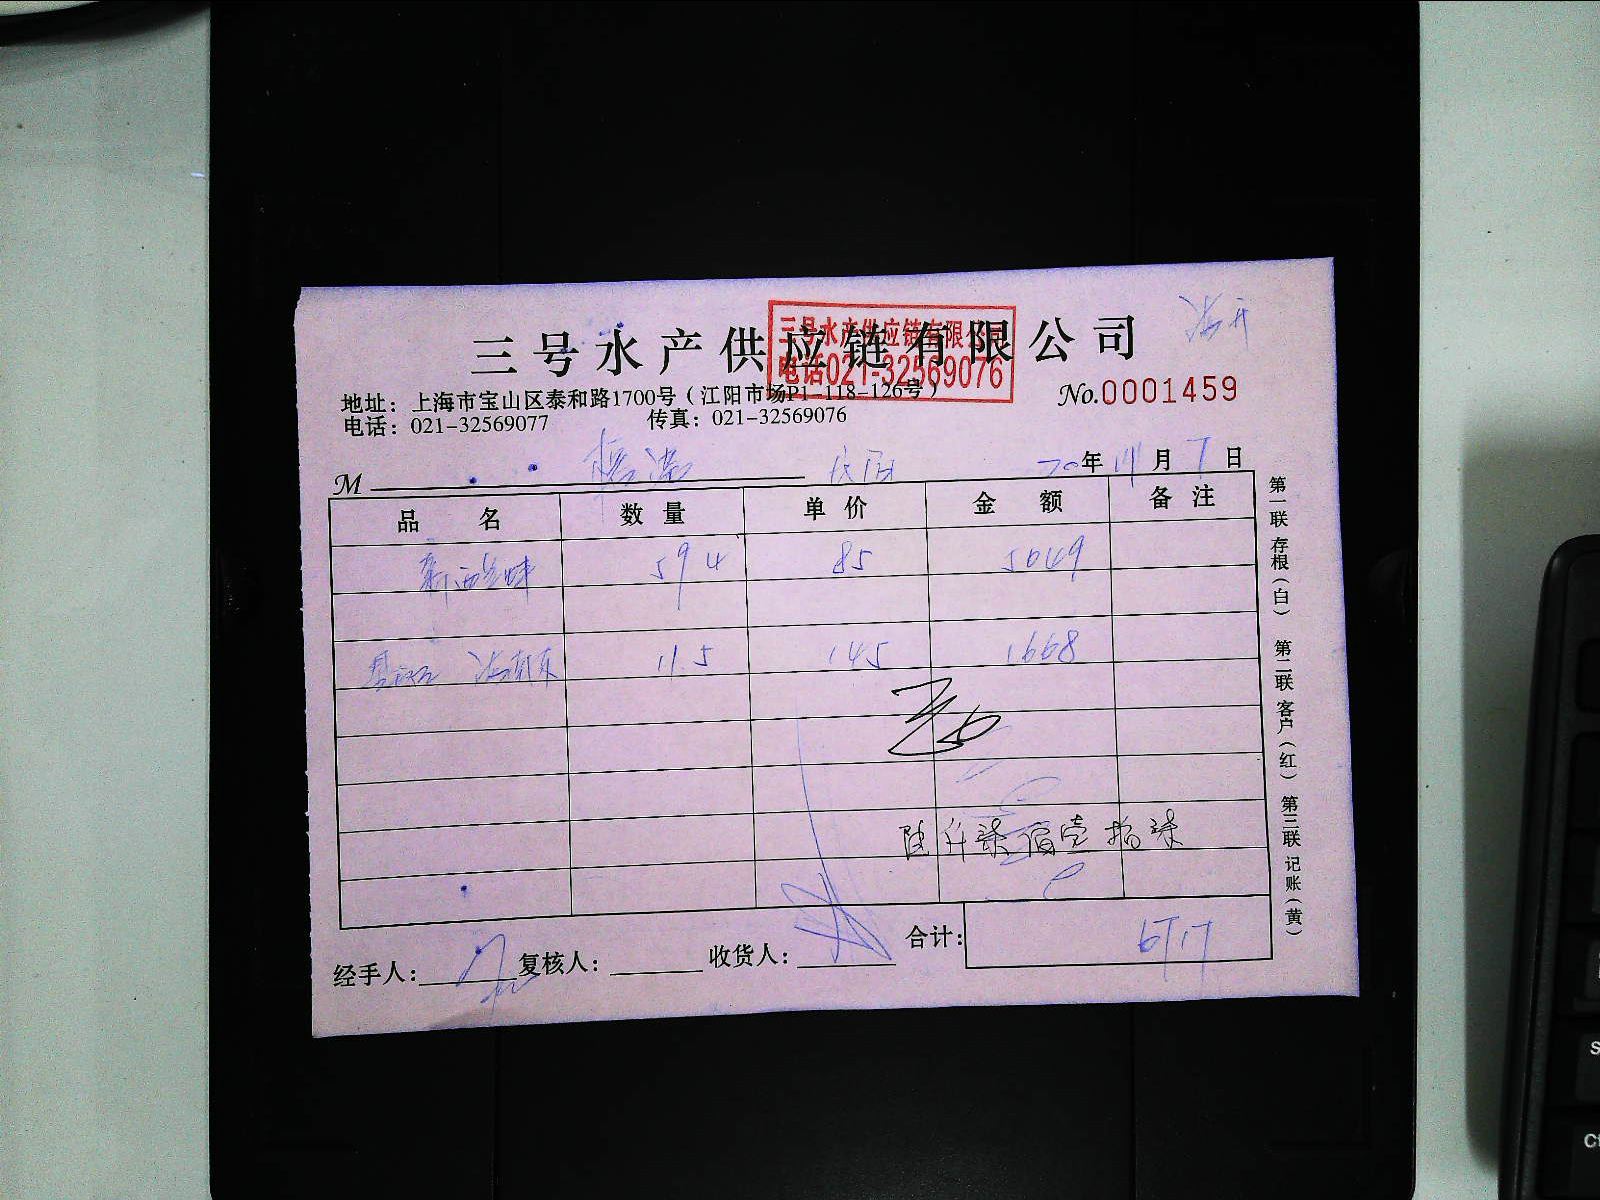 三号水产供应链有限公司
三号水产供应链有限公司
电话021-32569076
地址：上海市宝山区泰和路1700号（江阳市场P1-118-126号）
No.0001459
电话：021-32569077 传真：021-32569076
M 年 月 7 日
品名 数量 单价 金额 备注
新西兰 594 85 5049
11.5 145 1668
陆仟柒佰壹拾柒
合计： 6717
经手人： 复核人： 收货人：
第一联 存根（白） 第二联 客户（红） 第三联 记账（黄）